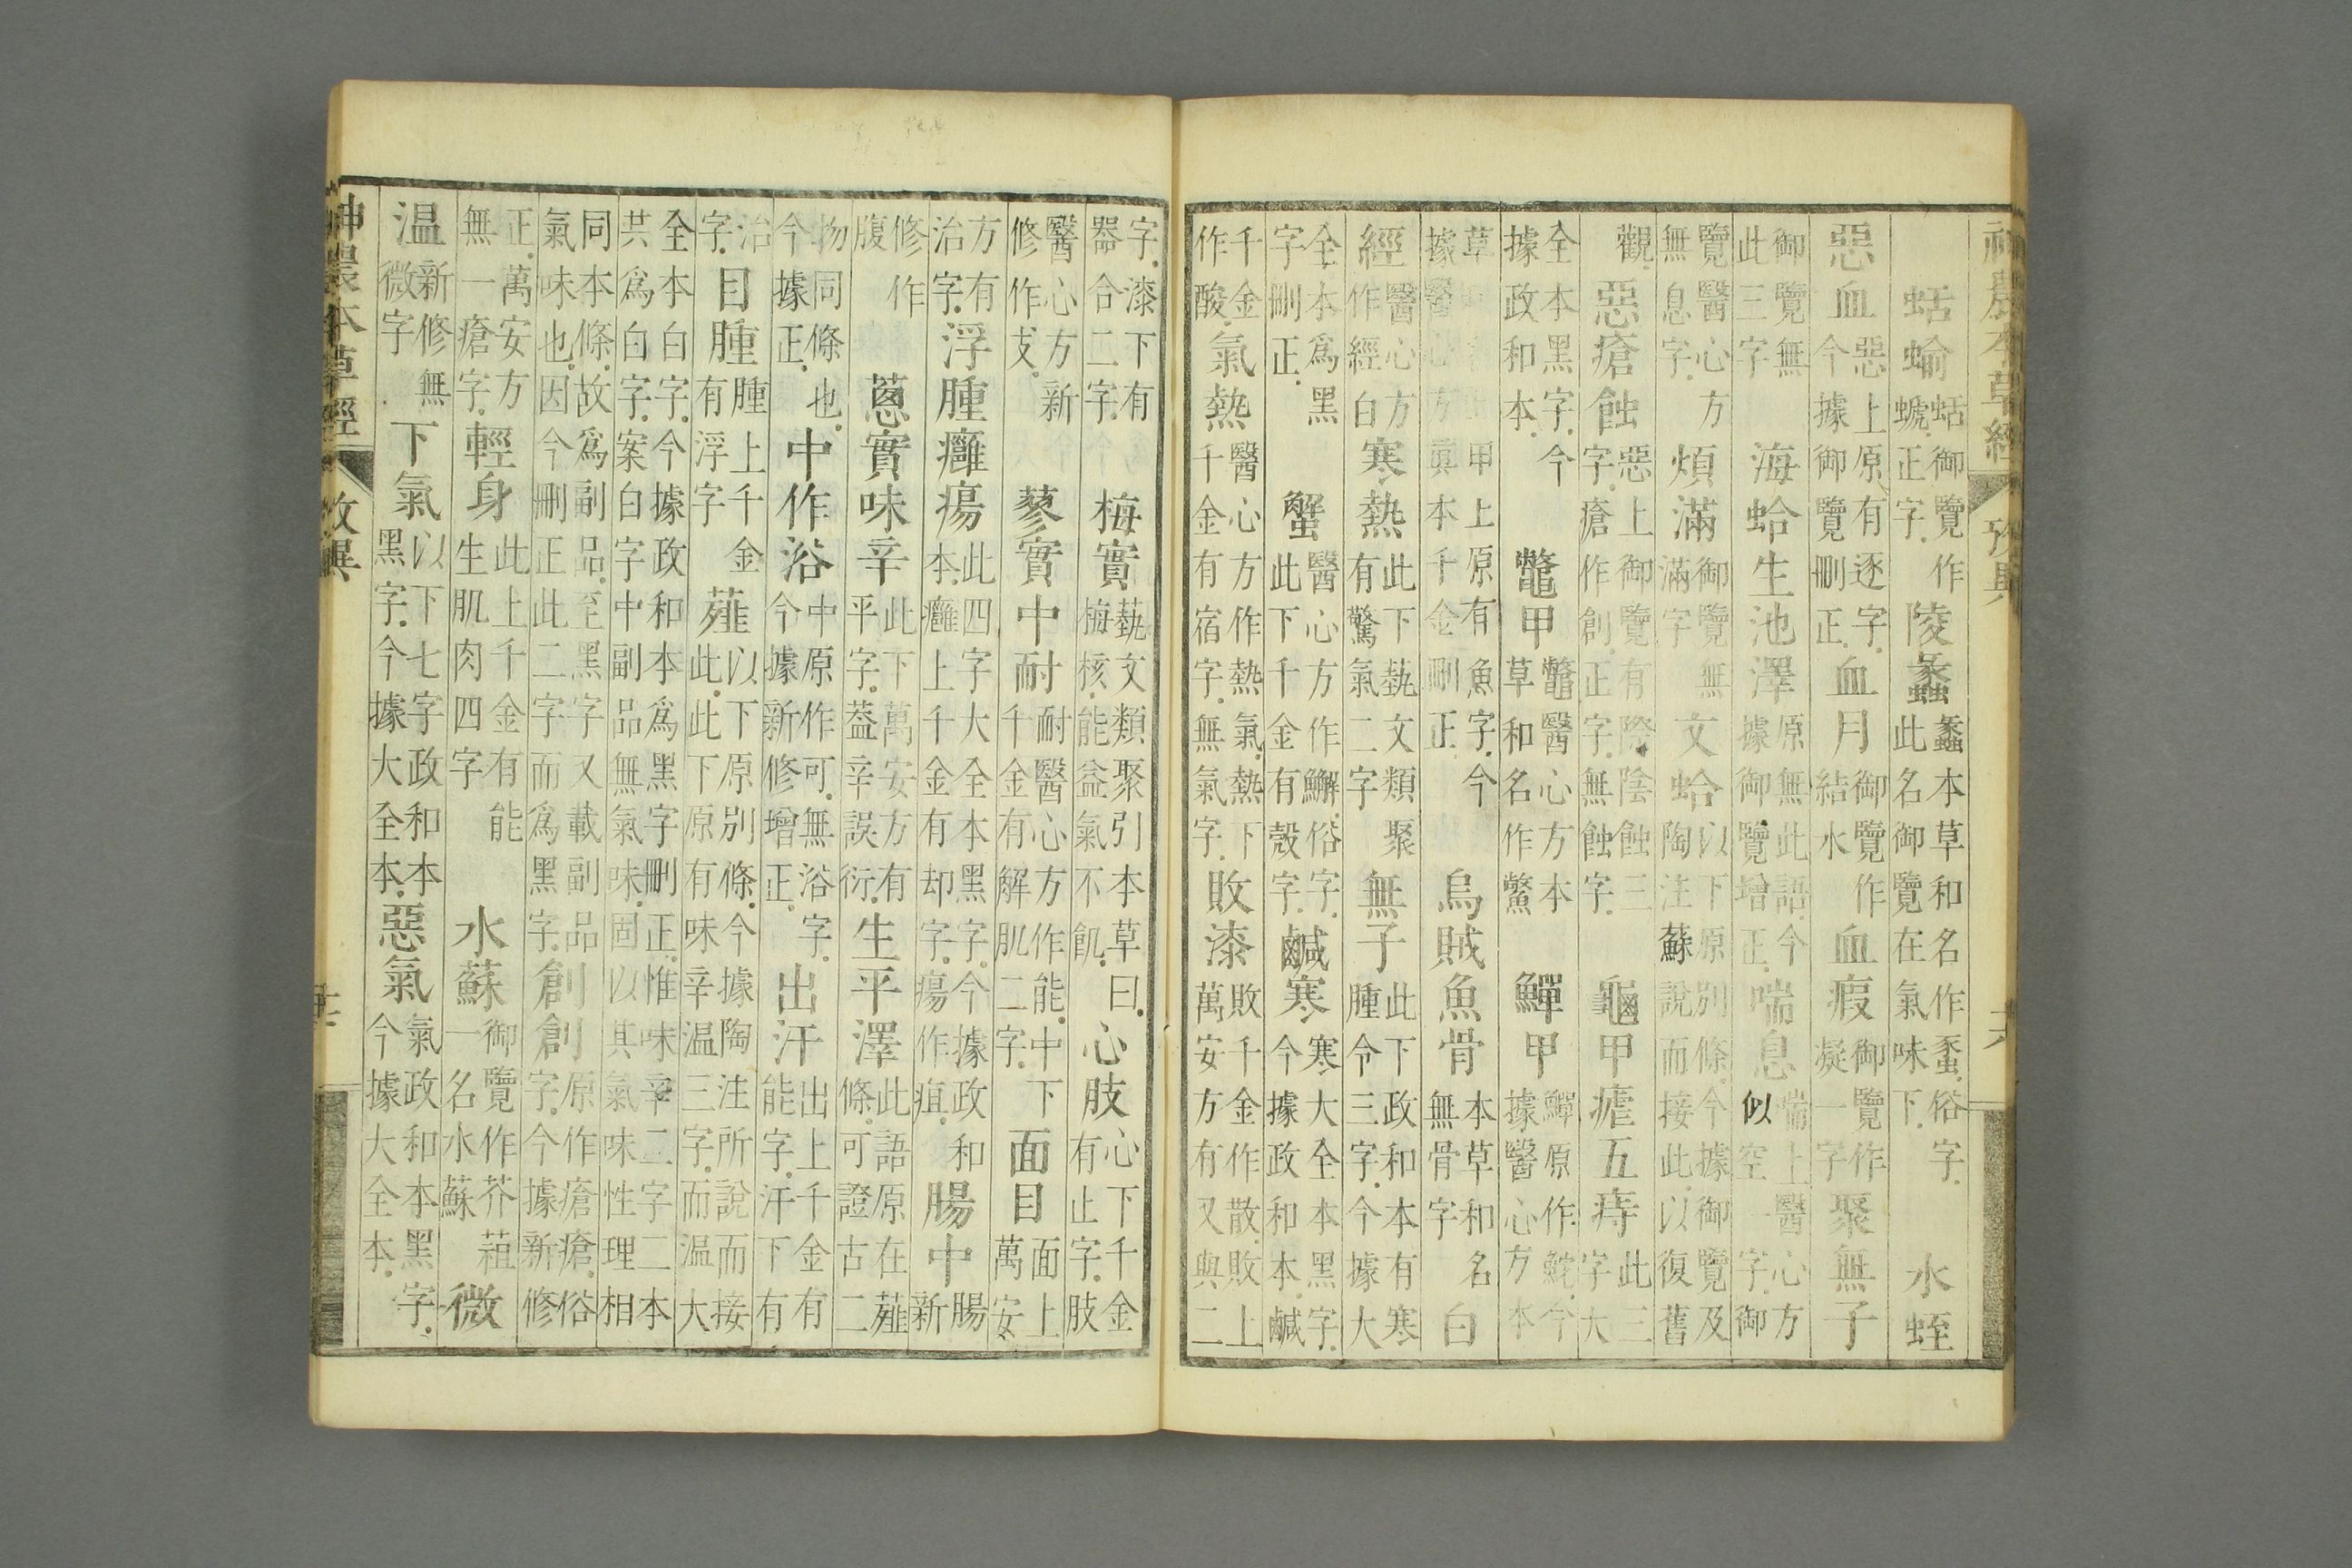 蛞蝓蛞御覽作蝛正字陵蠡蠡本草和名作䗍俗字此名御覽在氣味下水蛭
惡血惡上原有逐字今據御覽刪正血月御覽作結水血瘕御覽作凝一字聚無子
御覽無此三字海蛤生池澤原無此語今據御覽增正喘息喘上醫心方似空一字御
覽醫心方無息字煩滿御覽無滿字文蛤以下原別條今據御覽及陶注蘇說而接此以復舊
觀惡瘡蝕惡上御覽有除陰蝕三字瘡作創正字無蝕字龜甲瘧五痔此三字大
全本黑字今據政和本鼈甲鼈醫心方本草和名作鱉鱓甲鱓原作鮀今據醫心方本
草甲上原有魚字今據醫心方眞本千金刪正烏賊魚骨本草和名無骨字白
經醫心方作經白寒熱此下藝文類聚有驚氣二字無子此下政和本有寒腫令三字今據大
全本爲黑字刪正蟹醫心方作蠏俗字此下千金有殼字鹹寒寒大全本黑字今據政和本鹹
千金作酸氣熱醫心方作熱氣熱下千金有宿字無氣字敗漆敗千金作散敗上萬安方有又與二
字漆下有器合二字梅實藝文類聚引本草曰梅核能益氣不飢心肢心下千金有止字肢
醫心方新修作支蓼實中耐耐醫心方作能中下千金有解肌二字面目面上萬安
方有治字浮腫癰瘍此四字大全本黑字今據政和本癰上千金有却字瘍作疽腸中腸新
修作腹蔥實味辛此下萬安方有平字葢辛誤衍生平澤此語原在薤條可證古二
物同條也今據正中作浴中原作可無浴字今據新修增正出汗出上千金有能字汗下有
治字目腫腫上千金有浮字薤以下原別條今據陶注所說而接此此下原有味辛溫三字而溫大
全本白字今據政和本爲黑字刪正惟味辛二字二本共爲白字案白字中副品無氣味固以其氣味性理相
同本條故爲副品至黑字又載副品氣味也因今刪正此二字而爲黑字創創原作瘡瘡俗字今據新修
正萬安方無一瘡字輕身此上千金有能生肌肉四字水蘇御覽作芥葅一名水蘇微
溫新修無微字下氣以下七字政和本黑字今據大全本惡氣氣政和本黑字今據大全本
神農本草經 攷異